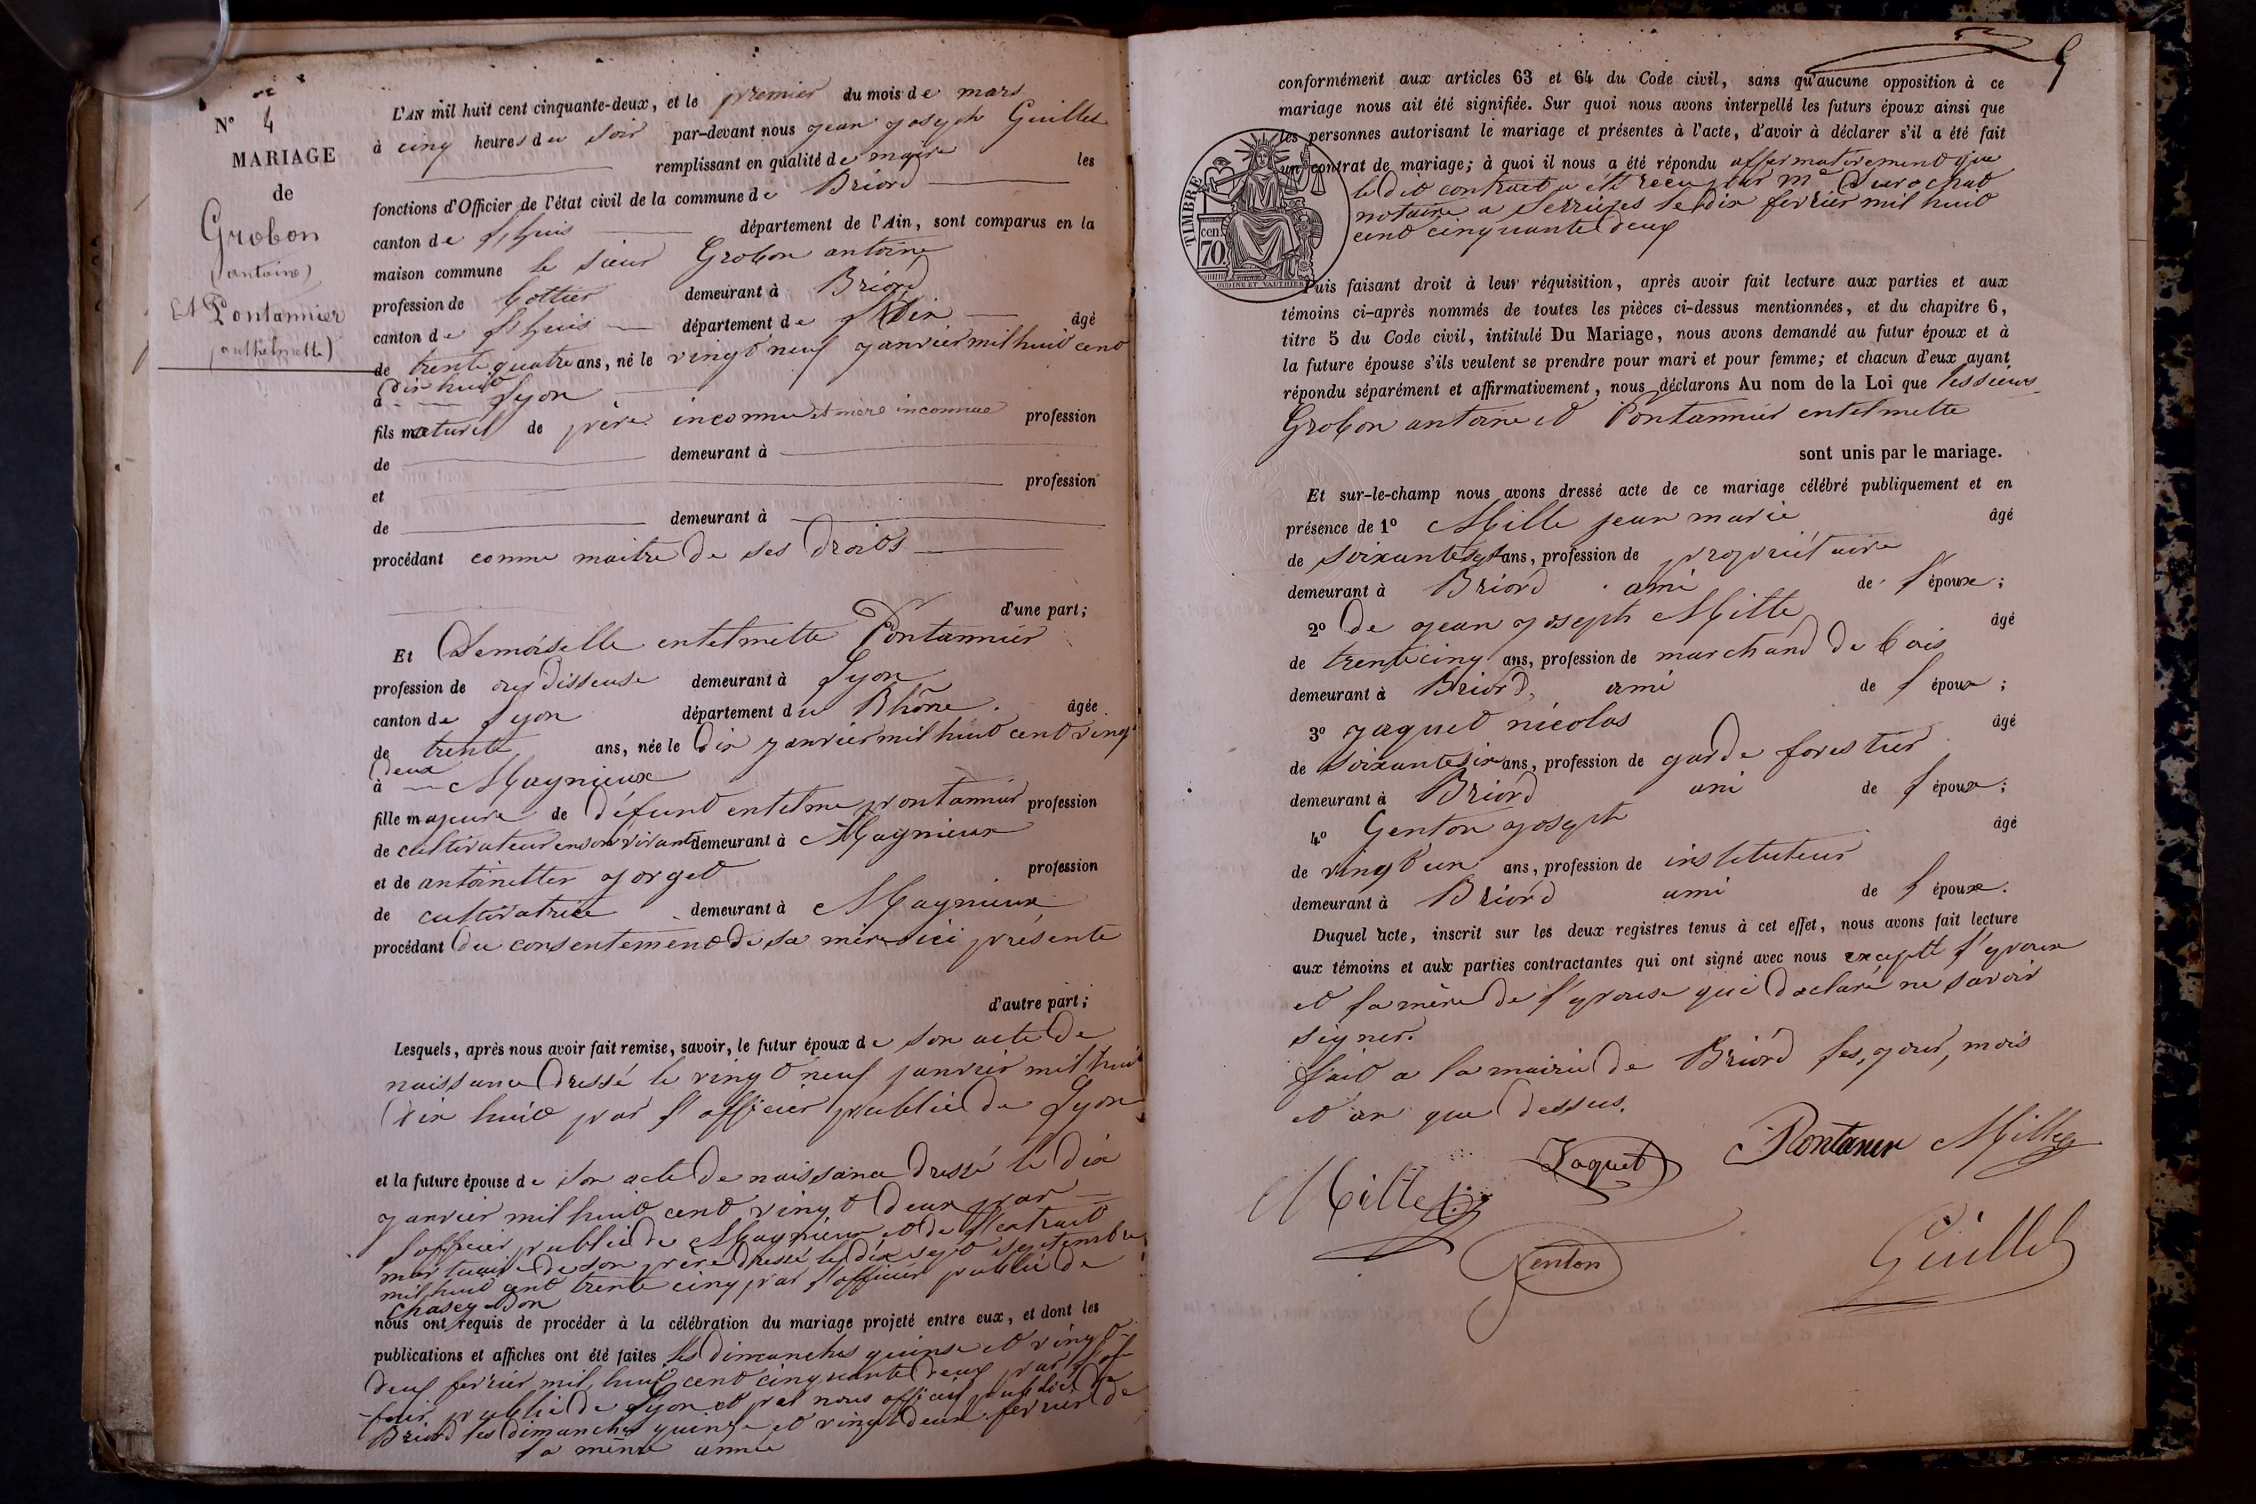 N° 4
MARIAGE
de
Grobon
(antoine)
Et Pontannier
(anthelmette)
L'AN mil huit cent cinquante-deux, et le premier du mois de mars
à cinq heures du soir par-devant nous jean joseph Guillet
remplissant en qualité de maire les
fonctions d'Officier de l'état civil de la commune de Briord
canton de Lhuis département de l'Ain, sont comparus en la
maison commune le sieur Grobon antoine
profession de demeurant à Briord
canton de Lhuis département de l'Ain âgé
de trente quatre ans, né le vingt neuf janvier mil huit cent
dix huit
à Lyon
fils naturel de père inconnu et mère inconnue profession
de demeurant à
et profession
de demeurant à
procédant comme maitre de ses droits
d'une part;
Et Demoiselle entelmette Pontannier
profession de ourdisseuse demeurant à Lyon
canton de Lyon département du Rhône. âgée
de trente ans, née le dix janvier mil huit cent vingt
deux
à Magnieux
fille majeure de défunt entelme pontannier profession
de cultivateur en son vivant demeurant à Magnieux
et de antoinette jorget profession
de cultivatrice demeurant à Magnieux
procédant du consentement de sa mère ici présente
d'autre part;
Lesquels, après nous avoir fait remise, savoir, le futur époux de son acte de
naissance dressé le vingt neuf janvier mil huit
dix huit par l'officier public de Lyon
et la future épouse de son acte de naissance dressé le dix
janvier mil huit cent vingt deux par
l'officier public de Magnieux et de l'extrait
mortuaire de son père dressé le dix sept septembre
mil huit cent trente cinq par l'officier public de
Chasey Bon
nous ont requis de procéder à la célébration du mariage projeté entre eux, et dont les
publications et affiches ont été faites les dimanches quinze et vingt
deux fevrier mil huit cent cinquante deux par l'of
ficier public de Lyon et par nous officier public de
Briord les dimanches quinze et vingt deux fevrier de
la même année
5
conformément aux articles 63 et 64 du Code civil, sans qu'aucune opposition à ce
mariage nous ait été signifiée. Sur quoi nous avons interpellé les futurs époux ainsi que
les personnes autorisant le mariage et présentes à l'acte, d'avoir à déclarer s'il a été fait
un contrat de mariage; à quoi il nous a été répondu affirmativement que
le dit contrat a été recu par Me Durochat
notaire a Serrières le dix février mil huit
cent cinquante deux
TIMBRE
cen.
70
OUDINE ET VAUTHIER
Puis faisant droit à leur réquisition, après avoir fait lecture aux parties et aux
témoins ci-après nommés de toutes les pièces ci-dessus mentionnées, et du chapitre 6,
titre 5 du Code civil, intitulé Du Mariage, nous avons demandé au futur époux et à
la future épouse s'ils veulent se prendre pour mari et pour femme; et chacun d'eux ayant
répondu séparément et affirmativement, nous déclarons Au nom de la Loi que les sieurs
Grobon antoine et Pontannier entelmette
sont unis par le mariage.
Et sur-le-champ nous avons dressé acte de ce mariage célébré publiquement et en
présence de 1° Mille jean marie âgé
de soixante sept ans, profession de propriétaire
demeurant à Briord ami de l'épouse;
2° de jean joseph Mille âgé
de trente cinq ans, profession de marchand de bois
demeurant à Briord, ami de l'époux;
3° jaquet nicolas âgé
de soixante six ans, profession de garde forestier
demeurant à Briord ami de l'époux;
4° Genton joseph âgé
de vingt un ans, profession de instituteur
demeurant à Briord ami de l'épouse.
Duquel acte, inscrit sur les deux registres tenus à cet effet, nous avons fait lecture
aux témoins et aux parties contractantes qui ont signé avec nous excepté l'epoux
et la mère de l'epouse qui declaré ne savoir
signer.
Fait a la mairie de Briord les, jour, mois
et an que dessus.
Jaquet Pontaner Mille
Mille
Genton Guillet